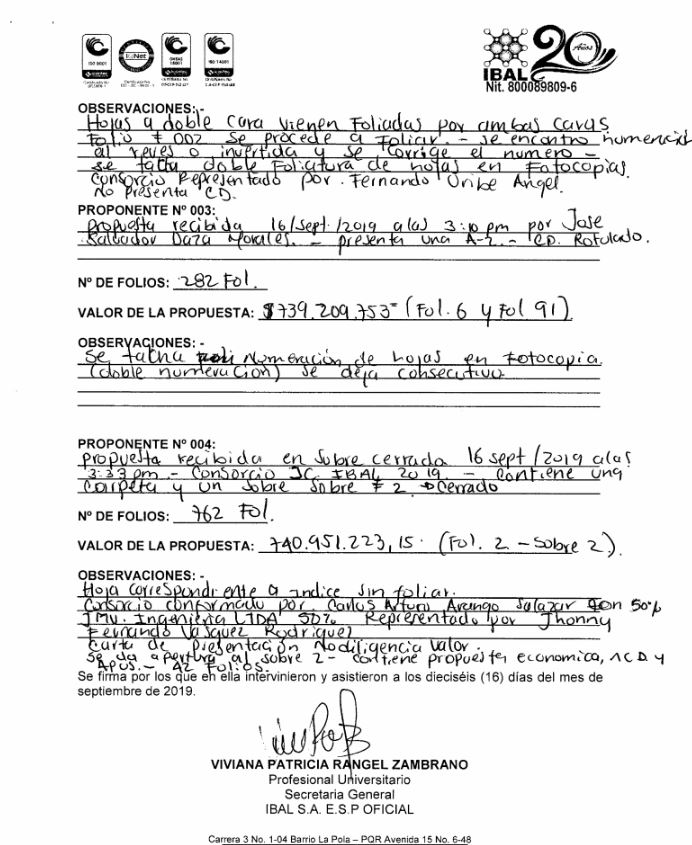 ISO 9001
IQNet
OHSAS 18001
ISO 14001
20 Años
IBAL
Nit. 800089809-6
OBSERVACIONES: -
Hojas a doble cara vienen Foliadas por ambas caras
Folio # 002 se procede a Foliar. - se encontro numeración
al reves o invertida y se corrige el numero -
se tacha doble Foliatura de hojas en Fotocopias.
Consorcio Representado por. Fernando Uribe Angel.
No Presenta CD.
PROPONENTE Nº 003:
propuesta recibida 16/Sept./2019 a las 3:10 pm por Jose
Salbador Daza Morales. - presenta una A-Z. - CD. Rotulado.
Nº DE FOLIOS: 282 Fol.
VALOR DE LA PROPUESTA: $739.209.753= (Fol. 6 y Fol 91)
OBSERVACIONES: -
Se tacha Numeración de hojas en Fotocopia.
(doble numeracion) se deja consecutivo
PROPONENTE Nº 004:
propuesta recibida en sobre cerrado 16 sept/2019 a las
3:33 pm - Consorcio JC. IBAL 2019 - contiene una
Carpeta y un sobre sobre # 2 Cerrado
Nº DE FOLIOS: 762 Fol.
VALOR DE LA PROPUESTA: 740.951.223,15. (Fol. 2 - Sobre 2).
OBSERVACIONES: -
Hoja correspondiente a indice sin foliar.
Consorcio conformado por. Carlos Arturo Arango Salazar con 50%
JMV. Ingenieria LTDA 50%. Representado por Jhonny
Fernando Vasquez Rodriguez
Carta de presentación No diligencia valor.
Se da apertura al sobre 2 - contiene propuesta economica, 1 CD y
APUS. - 42 Folios.
Se firma por los que en ella intervinieron y asistieron a los dieciséis (16) días del mes de
septiembre de 2019.
VIVIANA PATRICIA RANGEL ZAMBRANO
Profesional Universitario
Secretaria General
IBAL S.A. E.S.P OFICIAL
Carrera 3 No. 1-04 Barrio La Pola – PQR Avenida 15 No. 6-48